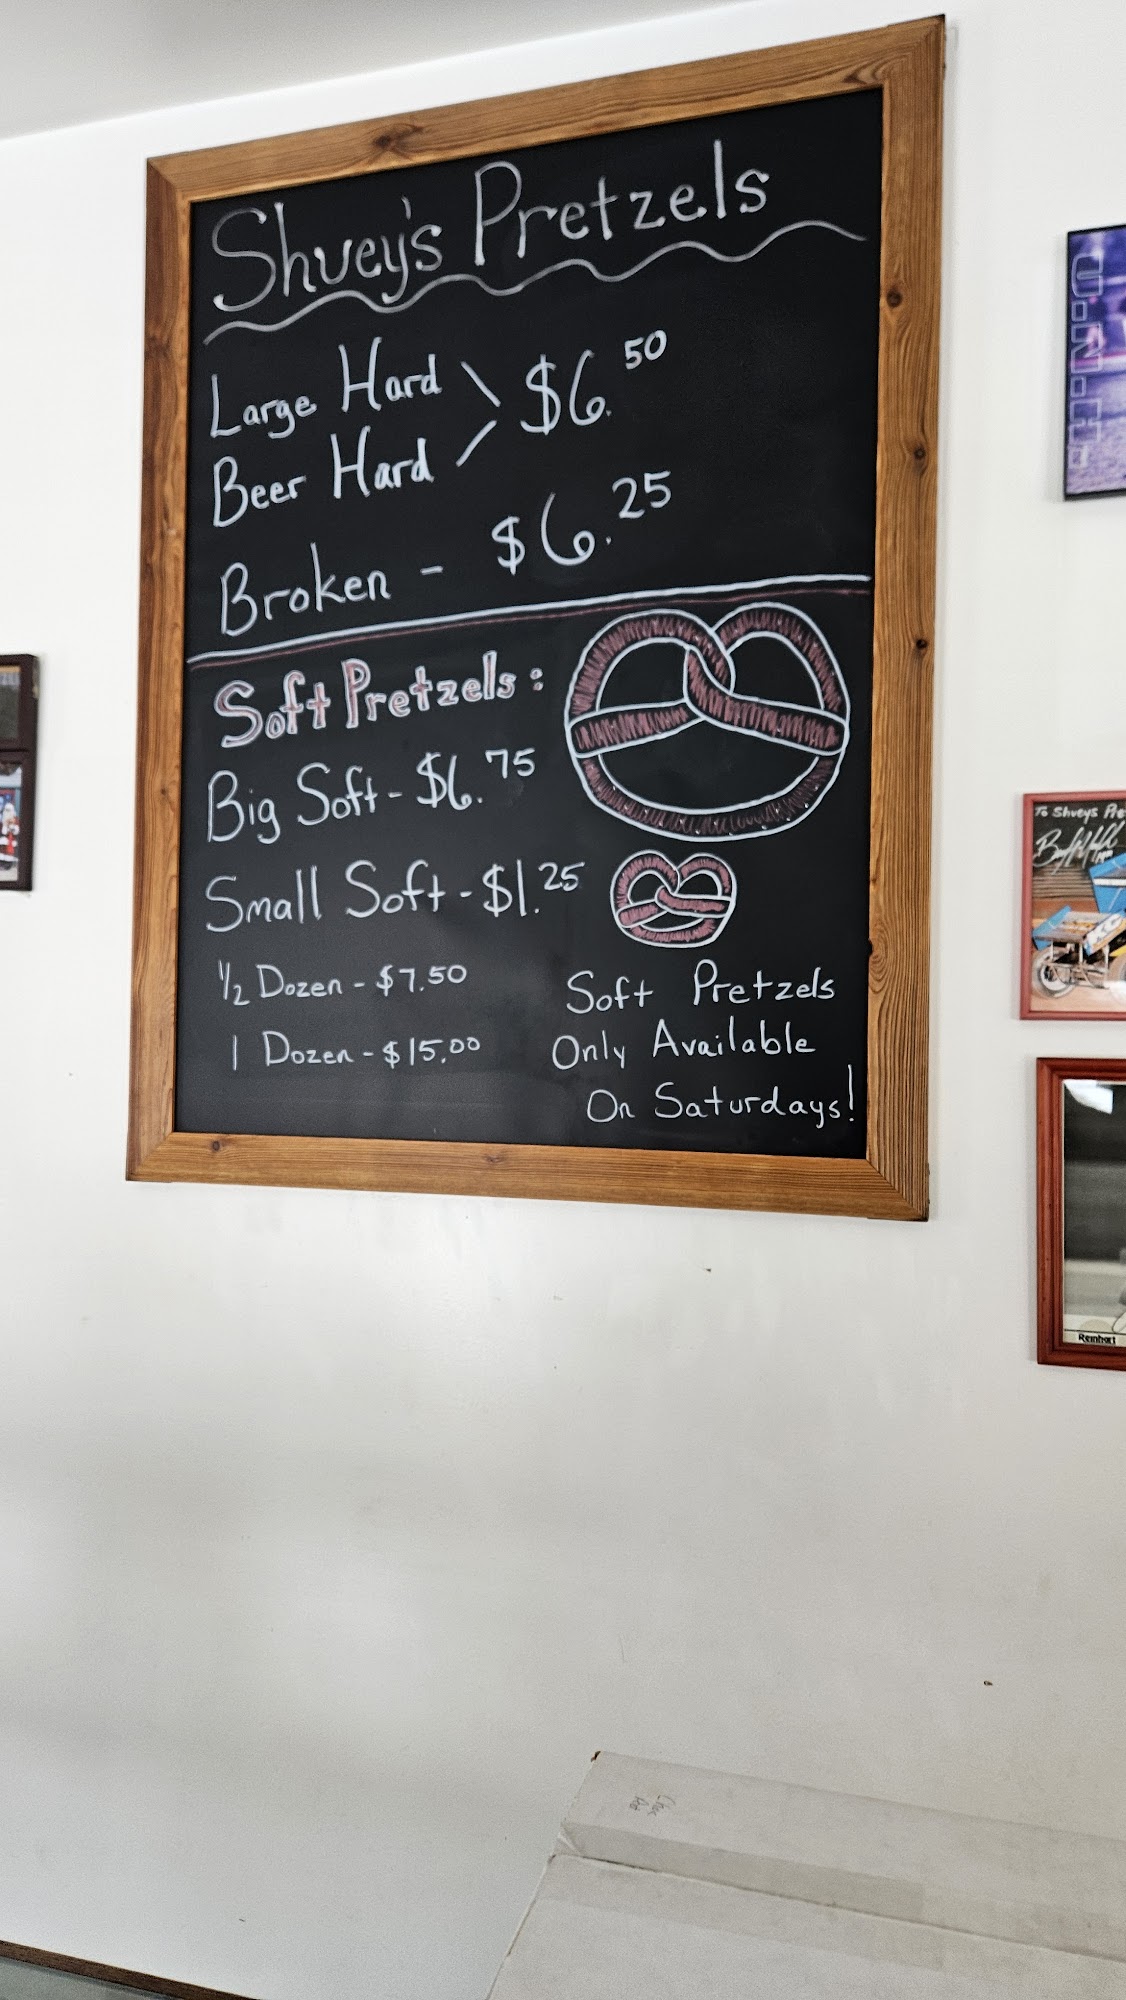 Shuey's Pretzels
Large Hard
Beer Hard
$6.50
Broken - $6.25
Soft Pretzels:
Big Soft - $6.75
Small Soft - $1.25
1/2 Dozen - $7.50
1 Dozen - $15.00
Soft Pretzels
Only Available
On Saturdays!
To Shueys Pre
Reinhart